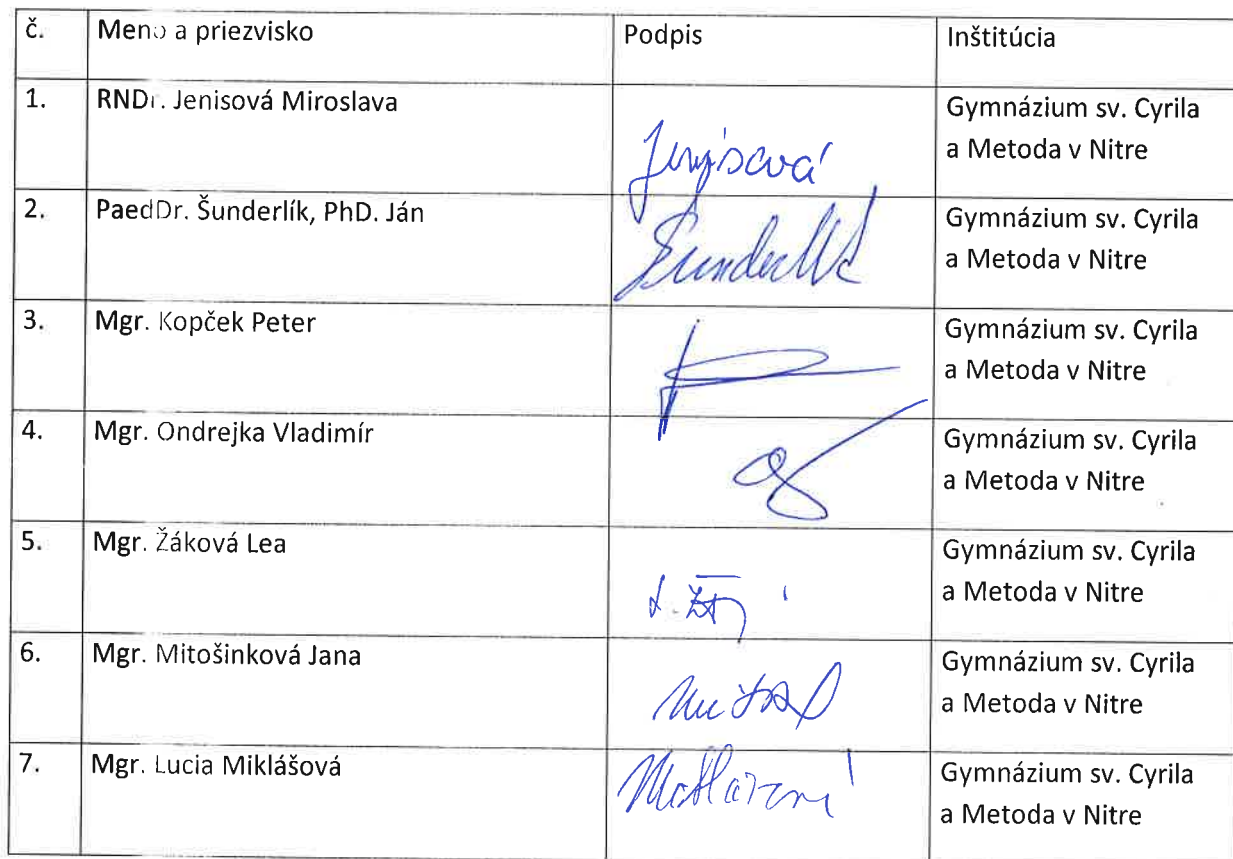 č. Meno a priezvisko Podpis Inštitúcia
1. RNDr. Jenisová Miroslava Jenisová Gymnázium sv. Cyrila
a Metoda v Nitre
2. PaedDr. Šunderlík, PhD. Ján Šunderlík Gymnázium sv. Cyrila
a Metoda v Nitre
3. Mgr. Kopček Peter Gymnázium sv. Cyrila
a Metoda v Nitre
4. Mgr. Ondrejka Vladimír Gymnázium sv. Cyrila
a Metoda v Nitre
5. Mgr. Žáková Lea Gymnázium sv. Cyrila
a Metoda v Nitre
6. Mgr. Mitošinková Jana Gymnázium sv. Cyrila
a Metoda v Nitre
7. Mgr. Lucia Miklášová Gymnázium sv. Cyrila
a Metoda v Nitre